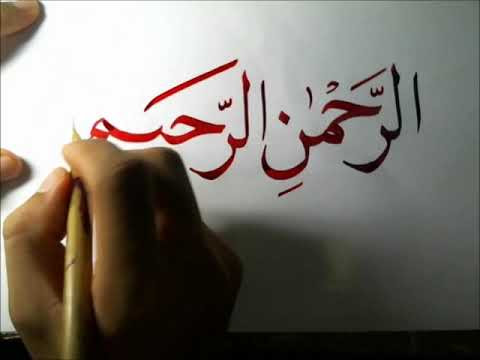 الرَّحْمٰنِ الرَّحىم